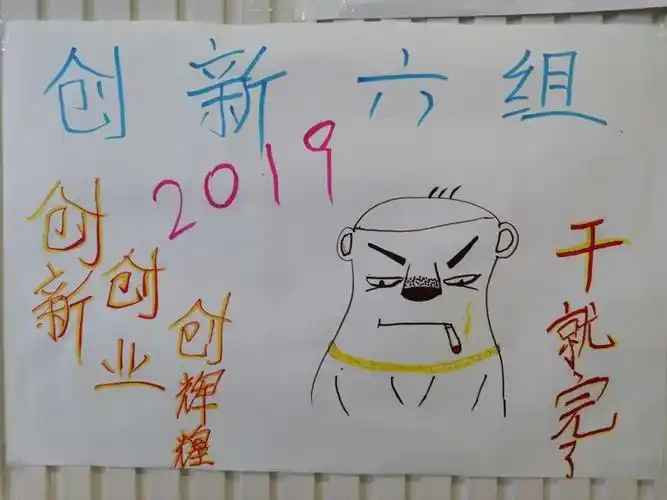 创新六组
2019
创新
创业
创辉煌
干就完了